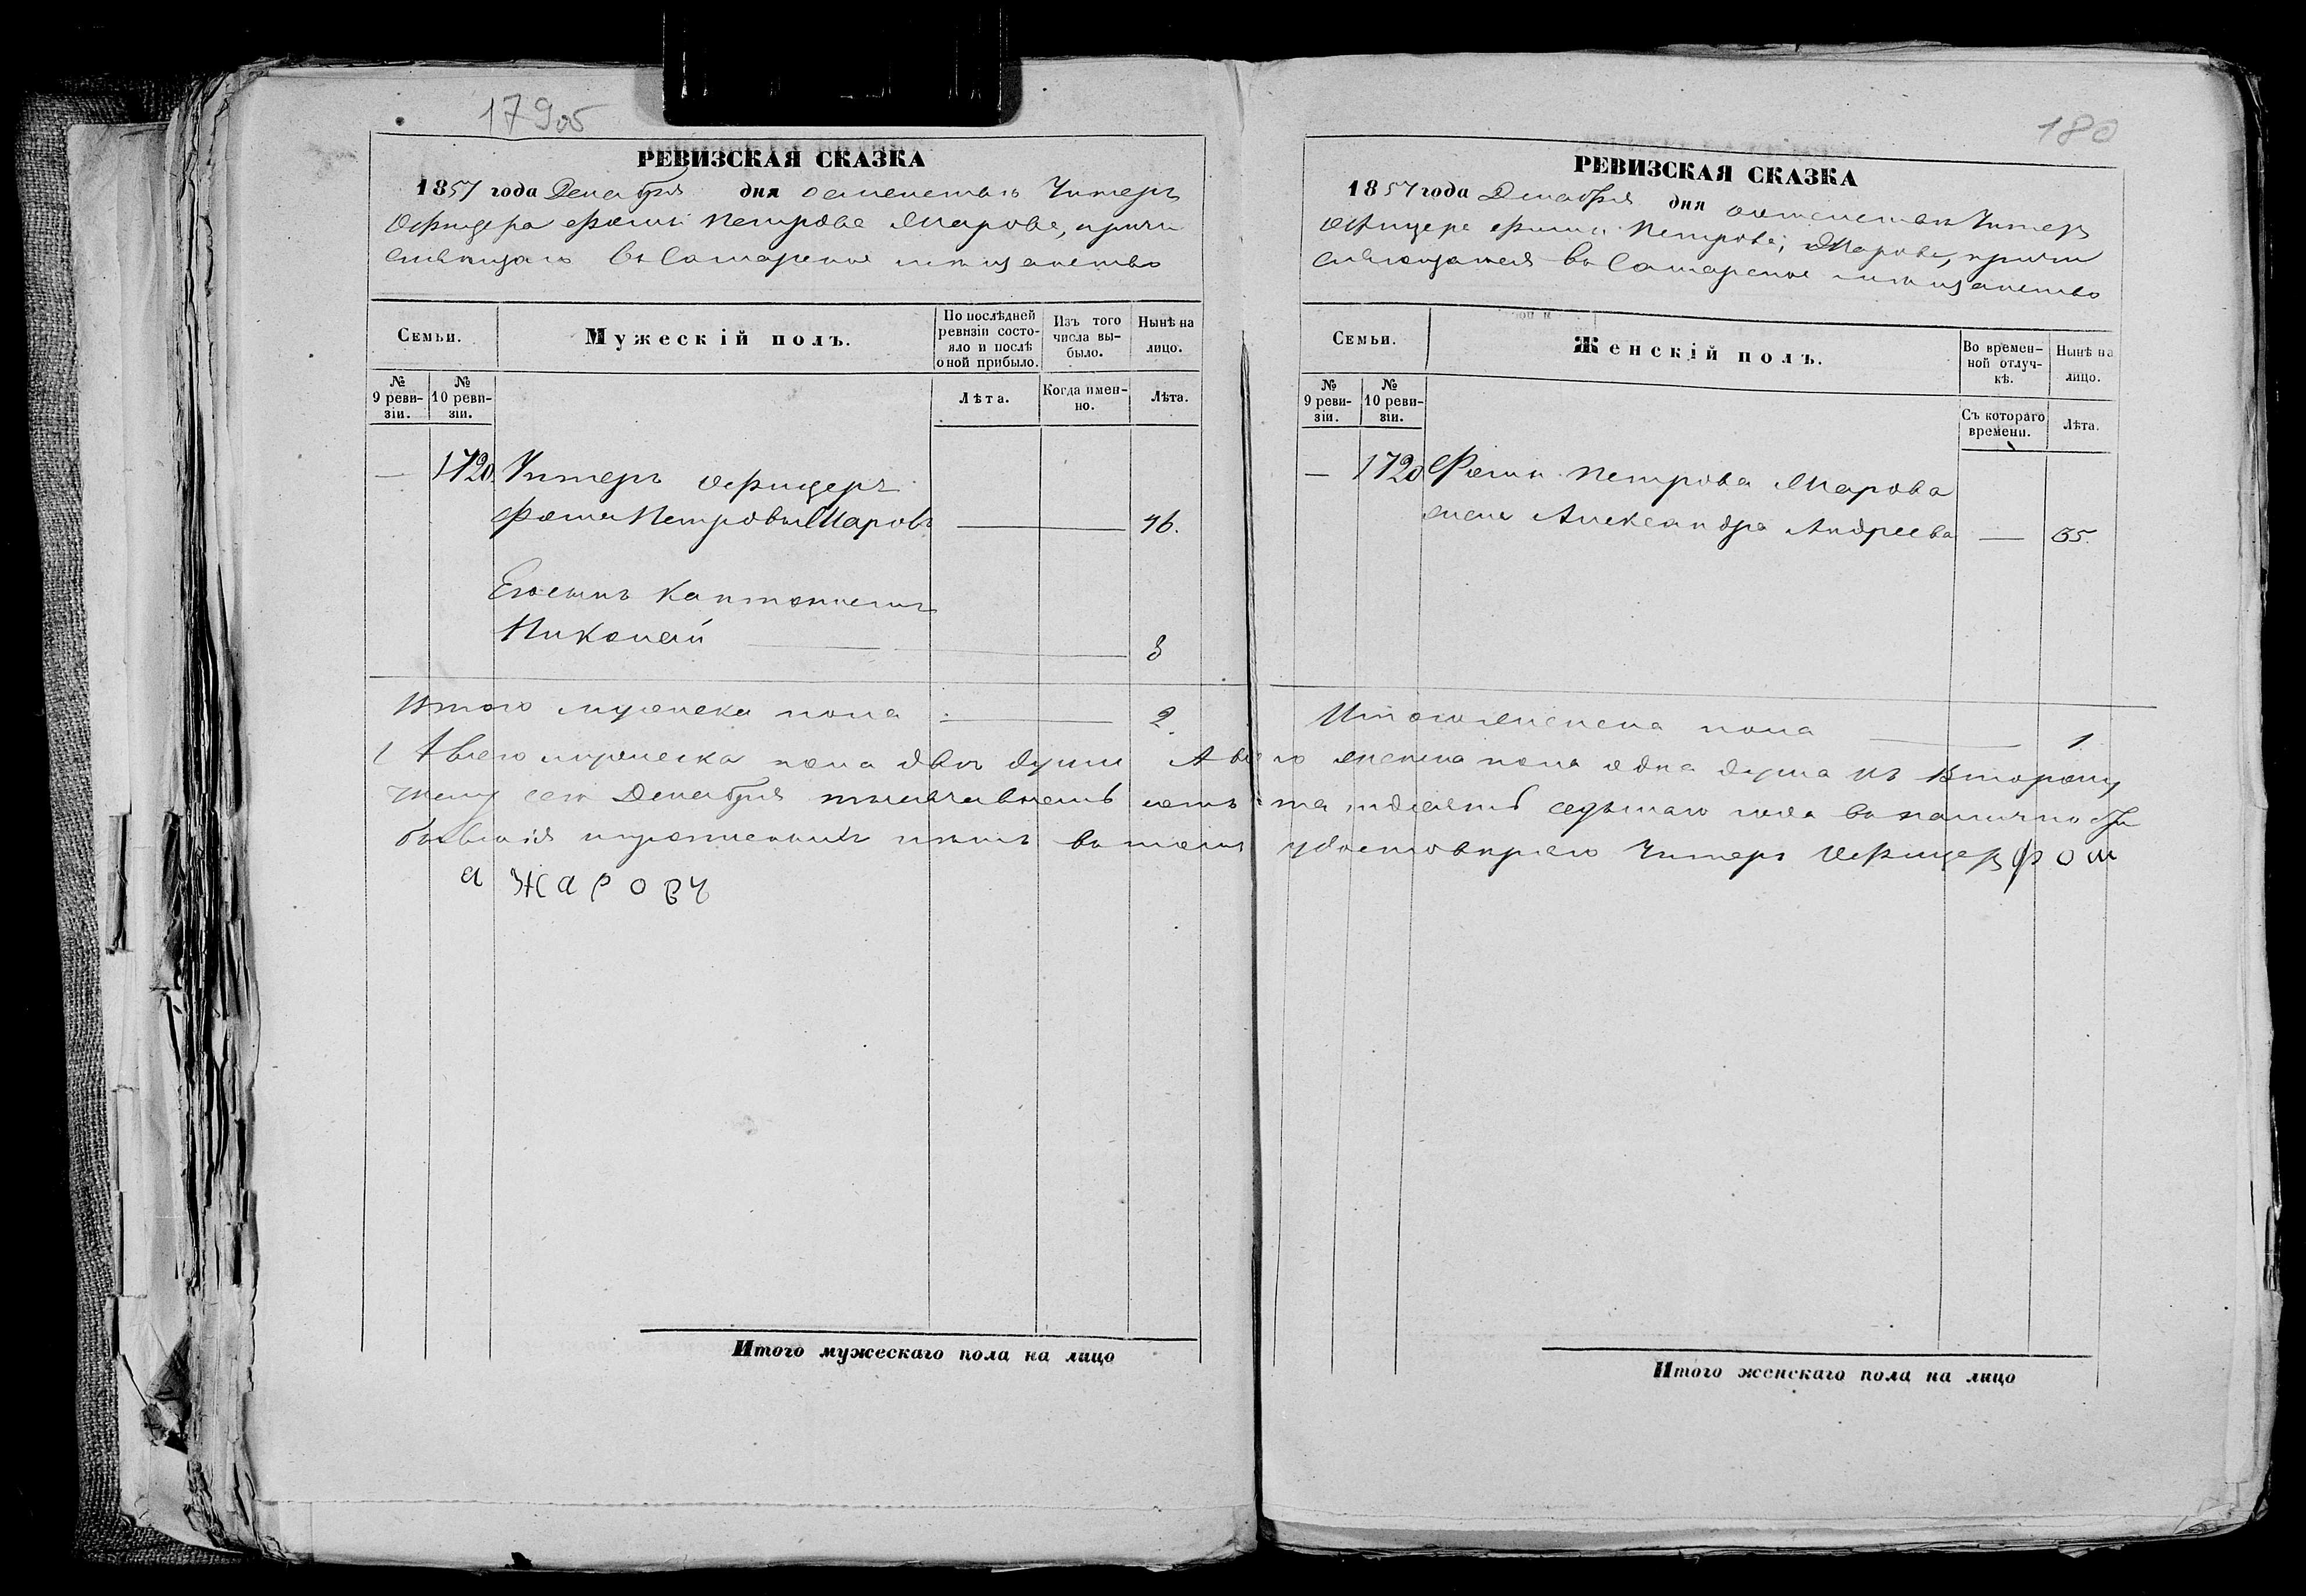 179об
РЕВИЗСКАЯ СКАЗКА
1857 года Декабря дня Унтеръ
Офицера Фомы Петрова Жарова, причи
въ Самарское мѣщанство
Семьи.
Мужескій полъ.
По послѣдней ревизіи состояло и послѣ оной прибыло.
Изъ того числа выбыло.
Нынѣ на лицо.
№ 9 ревизіи.
№ 10 ревизіи.
Лѣта.
Когда именно.
Лѣта.
— 1720 Унтеръ Офицеръ
Фома Петровъ Жаровъ — 46.
Его сынъ Кантонистъ
Николай — 8
Итого мужеска пола — 2.
А всего мужеска пола двѣ души
сего Декабря тысяча
бывшія
а Жарову
Итого мужескаго пола на лицо
180
РЕВИЗСКАЯ СКАЗКА
1857 года Декабря дня Унтеръ
Офицера Фомы Петрова, Жарова, причи
сляющагося въ Самарское мѣщанство
Семьи.
Женскій полъ.
Во временной отлучкѣ.
Нынѣ на лицо.
№ 9 ревизіи.
№ 10 ревизіи.
Съ котораго времени.
Лѣта.
— 1720 Фомы Петрова Жарова
жена Александра Андреева — 35.
Итого женска пола — 1
А всего женска пола одна душа
седьмаго года въ наличности
Унтеръ Офицеръ Фом
Итого женскаго пола на лицо